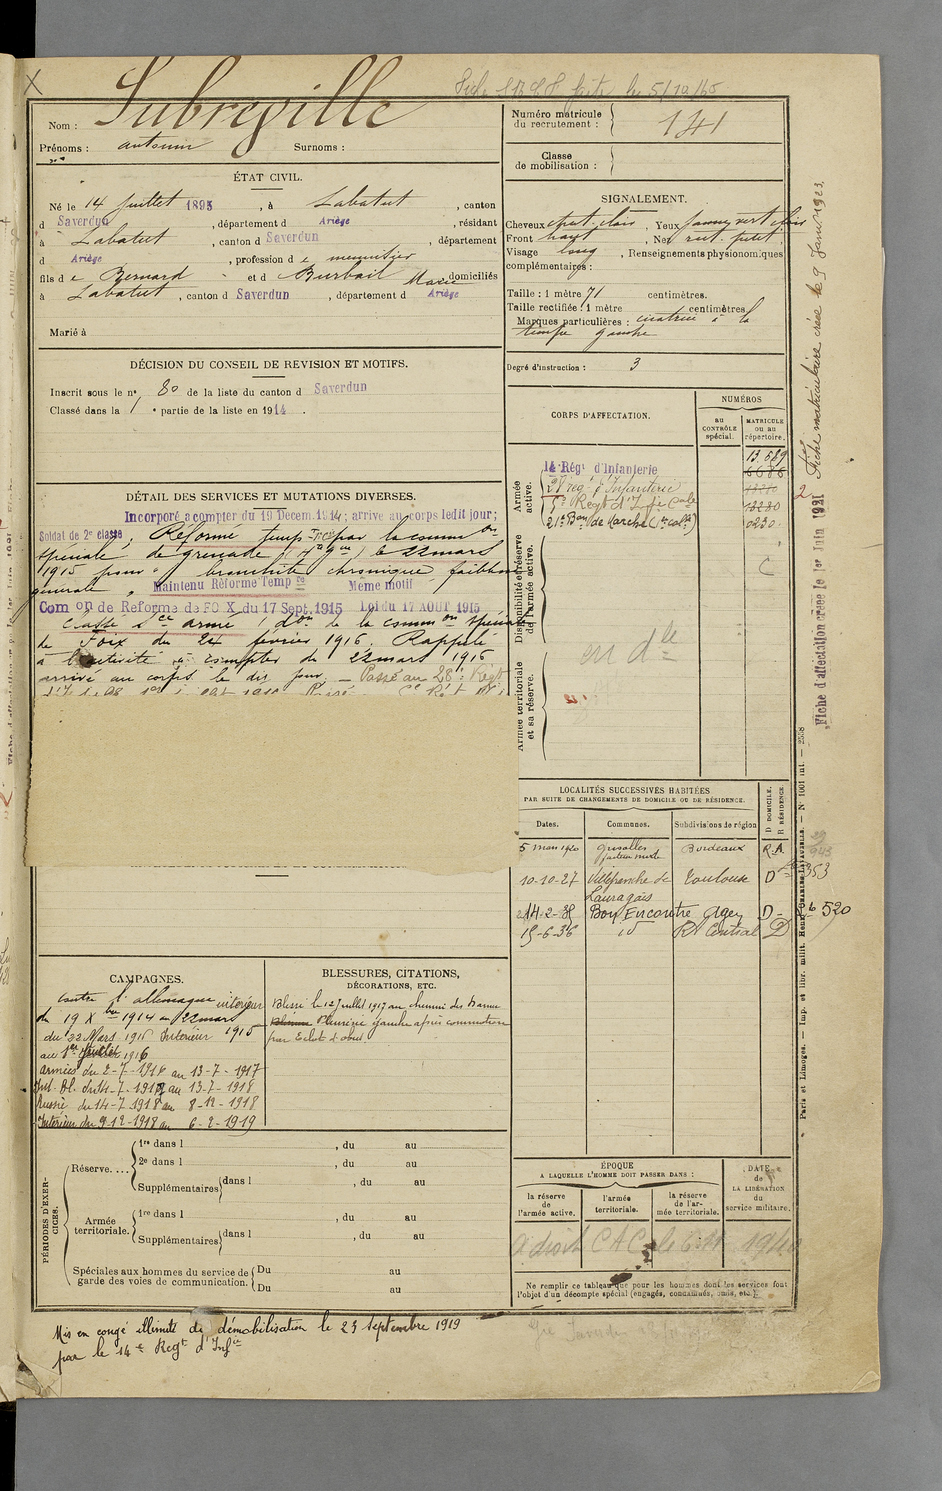 Fiche faite le 5/10/65
Nom : Subreville
Prénoms : Antonin Surnoms :
Numéro matricule
du recrutement : 141
Classe
de mobilisation :
ÉTAT CIVIL.
Né le 14 juillet 1895, à Labatut, canton
d Saverdun, département d Ariège, résidant
à Labatut, canton d Saverdun, département
d Ariège, profession d e meunier
fils d e Bernard et d e Burbail Marie, domiciliés
à Labatut, canton d Saverdun, département d Ariège
Marié à
SIGNALEMENT.
Cheveux chat. clair, Yeux jaune vert clair
Front haut, Nez rect. petit
Visage long, Renseignements physionomiques
complémentaires :
Taille : 1 mètre 71 centimètres.
Taille rectifiée : 1 mètre centimètres
Marques particulières : cicatrice à la
tempe gauche
Degré d'instruction : 3
DÉCISION DU CONSEIL DE REVISION ET MOTIFS.
Inscrit sous le n° 80 de la liste du canton d Saverdun
Classé dans la 1 e partie de la liste en 1914.
DÉTAIL DES SERVICES ET MUTATIONS DIVERSES.
Incorporé a compter du 19 Décem. 1914; arrive au corps ledit jour;
Soldat de 2e classe, Réformé temp re par la comm on
spéciale de
1915 pour bronchite chronique, faiblesse
générale, Maintenu Réformé Temp re Même motif
Com on de Réforme de FOIX du 17 Sept. 1915 Loi du 17 AOUT 1915
Classé S ce armé don de la comm on spéciale
de Foix du 24 février 1916. Rappelé
à l'activité à compter du 22 mars 1916
arrivé au corps le dit jour. Passé au 28e Régt
CORPS D'AFFECTATION.
NUMÉROS
au
CONTRÔLE
spécial.
MATRICULE
ou au
répertoire.
Armée
active.
14 Régt d'Infanterie
28 reg t d'Infanterie
5e Regt d'Inf ie C ale
21e B on de Marche (Ie col le)
13.589
6686
13230
0230
Disponibilité et réserve
de l'armée active.
Armée territoriale
et sa réserve.
LOCALITÉS SUCCESSIVES HABITÉES
PAR SUITE DE CHANGEMENTS DE DOMICILE OU DE RÉSIDENCE.
Dates. Communes. Subdivisions de région D DOMICILE. R RÉSIDENCE.
5 mars 1920 Grisolles facteur mixte Bordeaux R.A.
10-10-27 Villefranche de Lauragais Toulouse D 353
14-2-35 Bon Encontre Agen D 520
15-6-36 id Rt Central D
CAMPAGNES.
Contre l'allemagne intérieur
du 19 X bre 1914 au 22 mars 1915
du 22 Mars 1916 Intérieur
au 1er Juillet 1916
armées du 2-7-1916 au 13-7-1917
Int. Bl. du 14-7-1917 au 13-7-1918
Russie du 14-7-1918 au 8-12-1918
Intérieur du 9-12-1918 au 6-2-1919
BLESSURES, CITATIONS,
DÉCORATIONS, ETC.
Blessé le 12 Juillet 1917 au chemin des Dames
Pleurésie gauche après commotion
par Eclat d'obus.
PÉRIODES D'EXERCICES.
Réserve....
1re dans l , du au
2e dans l , du au
Supplémentaires dans l , du au
Armée
territoriale.
1re dans l , du au
Supplémentaires dans l , du au
Spéciales aux hommes du service de
garde des voies de communication.
Du au
Du au
ÉPOQUE
A LAQUELLE L'HOMME DOIT PASSER DANS :
la réserve
de
l'armée active.
l'armée
territoriale.
la réserve
de l'ar-
mée territoriale.
DATE
de
LA LIBÉRATION
du
service militaire.
A droit C A C le 6.11 1940
Ne remplir ce tableau que pour les hommes dont les services font
l'objet d'un décompte spécial (engagés, condamnés, omis, etc.).
Mis en congé illimité de démobilisation le 23 Septembre 1919
par le 14e Regt d'Inf ie
Fiche matriculaire créée le 9 Janv. 1923
Fiche d'affectation créée le 1er Juin 1921
Paris et Limoges. — Imp. et libr. milit. Henri CHARLES-LAVAUZELLE. — N° 1001 int. — 2558